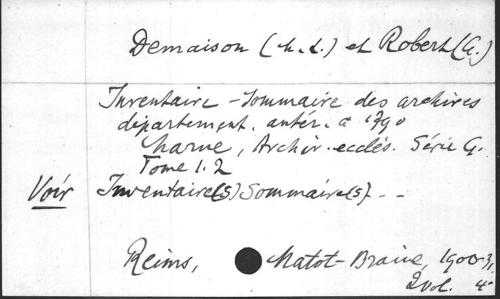 Demaison (h. L.) et Robert (G.)
Inventaire-Sommaire des archives
département. antér. à 1790
Marne, Archiv. ecclés. Série G.
Tome 1.2
Voir Inventaire(s) Sommaire(s) - -
Reims, Matot-Braine, 1900-3,
2 vol. 4°